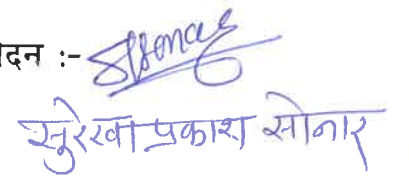 दन :- SPSonar
सुरेखा प्रकाश सोनार